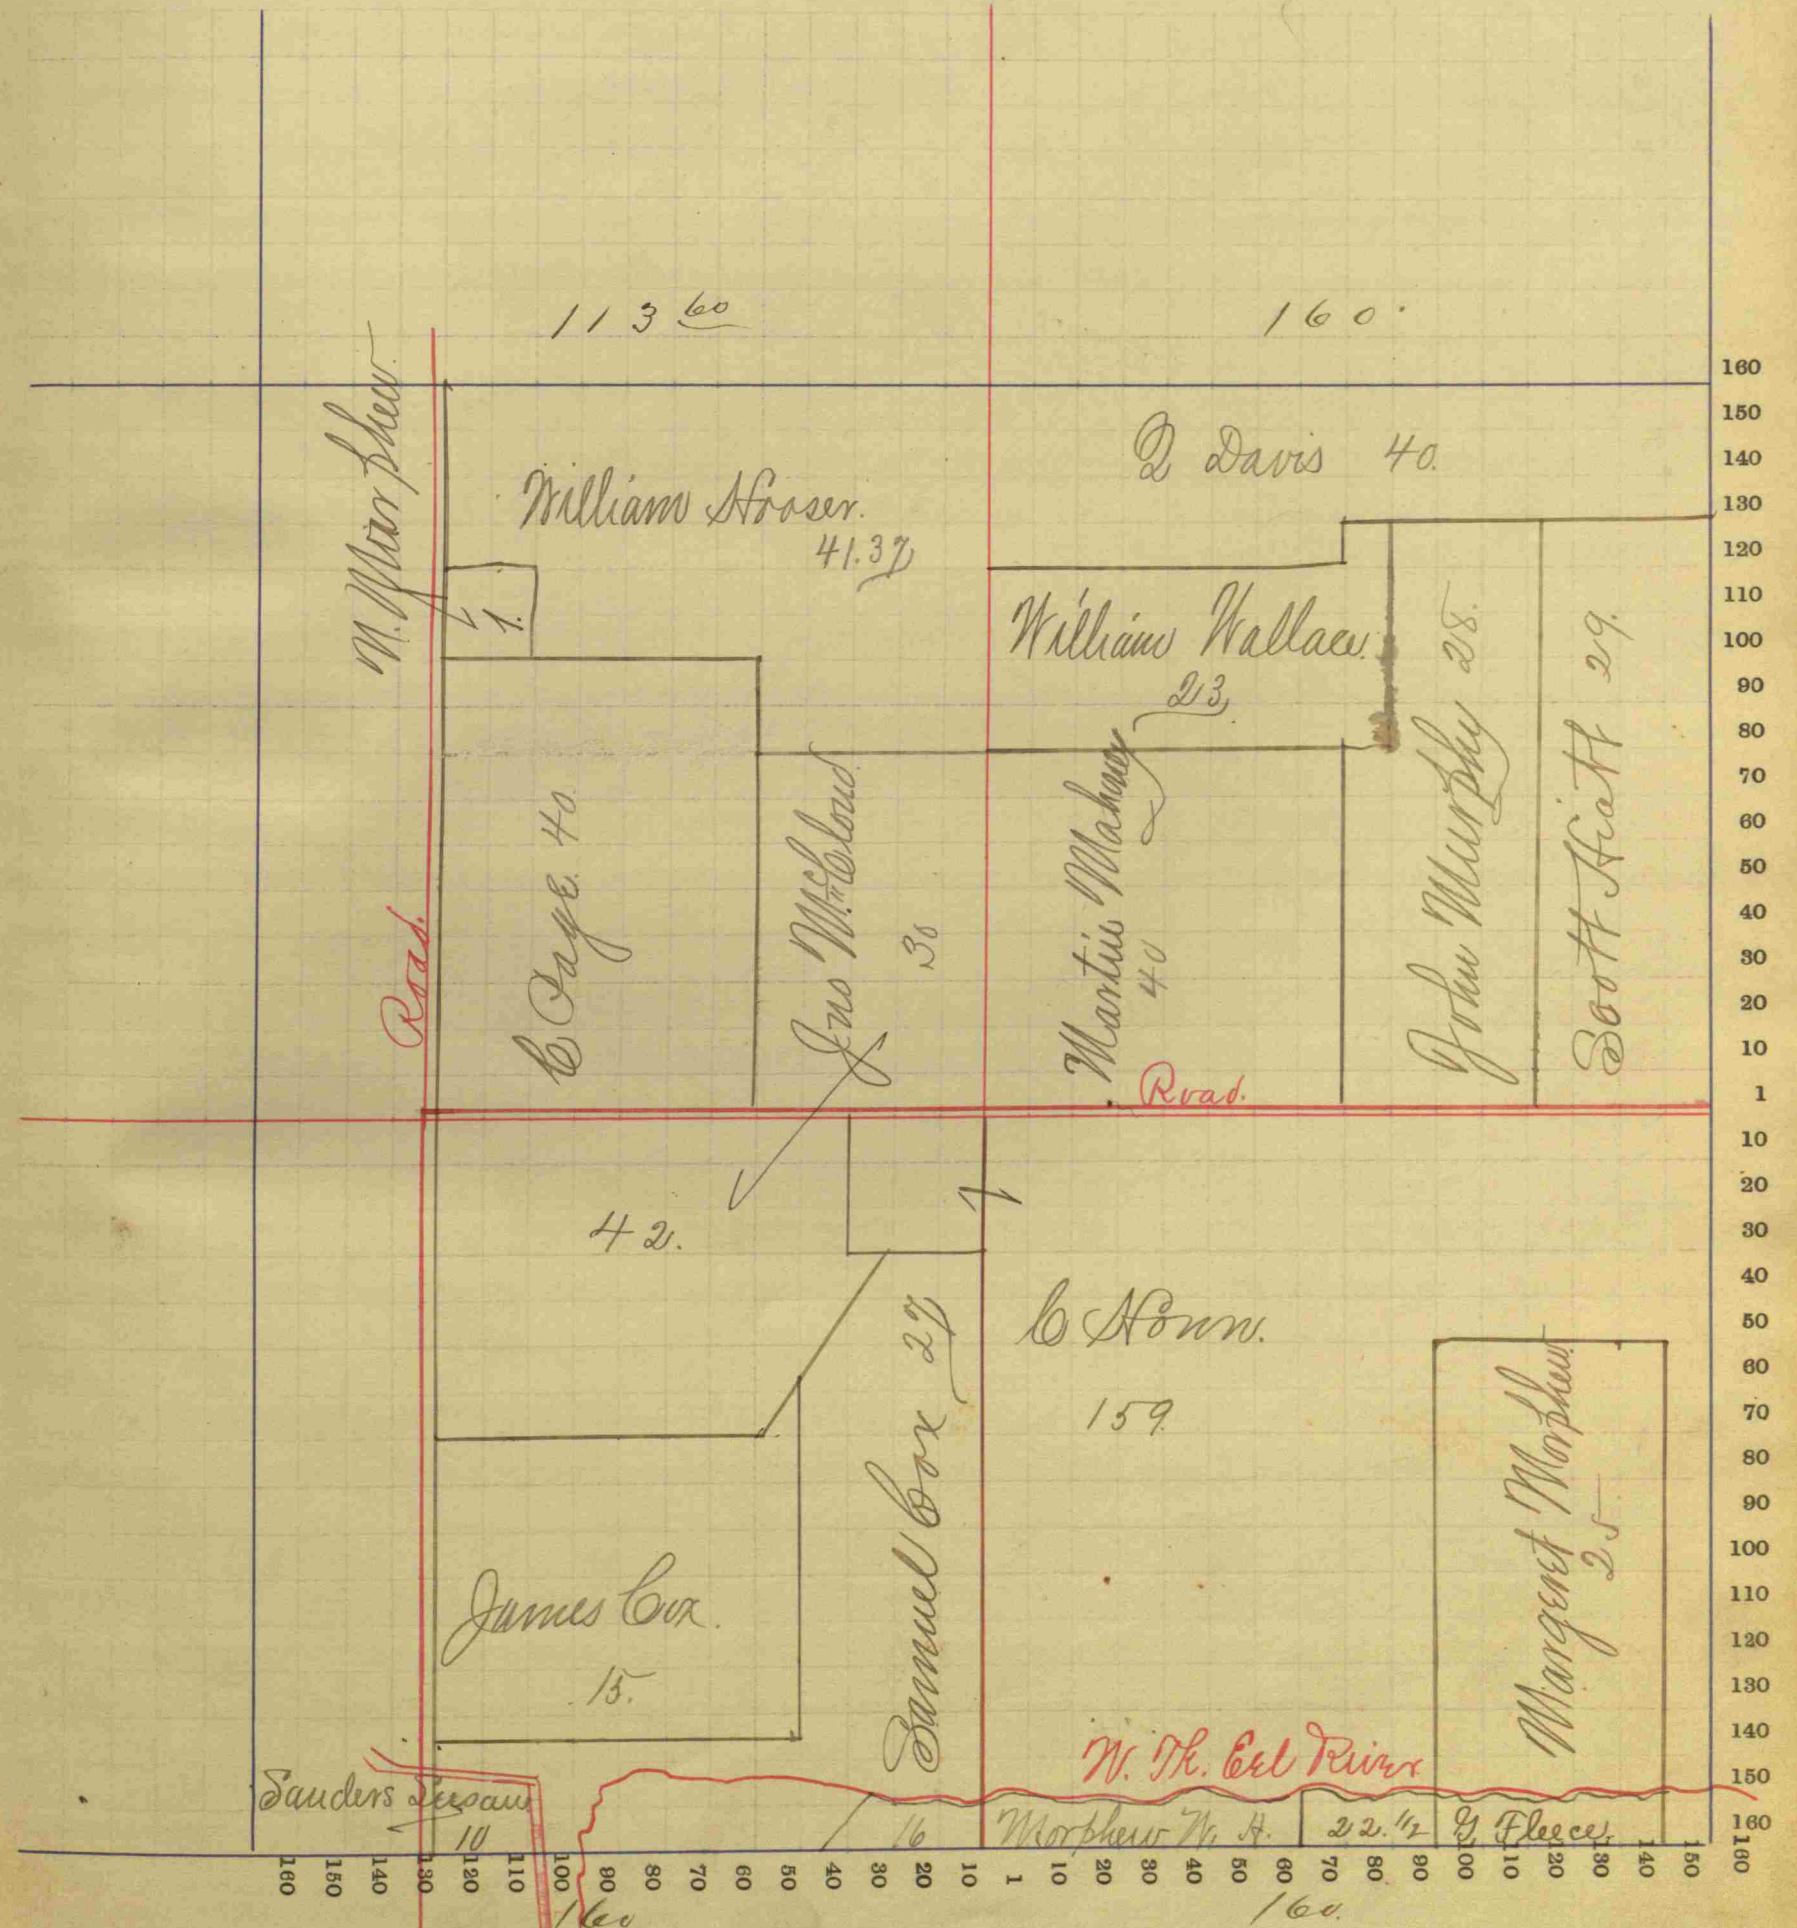 113 60
160.
N. Morphew
William Hooser.
41.37
1.
Q Davis 40.
William Wallace.
23
C Page. 40
Jno McCloud
30
Martin Mahoney
40
John Murphy 28.
Scott Hiatt 29.
Road.
Road.
42.
Samuel Cox 27
C Honn.
159.
Margeret Morphew
25
James Cox.
15.
W. Fk. Eel River
Sanders Susan
10
16
Morphew W. H.
22.1/2
G Fleece.
160
150
140
130
120
110
100
90
80
70
60
50
40
30
20
10
1
10
20
30
40
50
60
70
80
90
100
110
120
130
140
150
160
160 150 140 130 120 110 100 90 80 70 60 50 40 30 20 10 1 10 20 30 40 50 60 70 80 90 100 110 120 130 140 150 160
160
160.